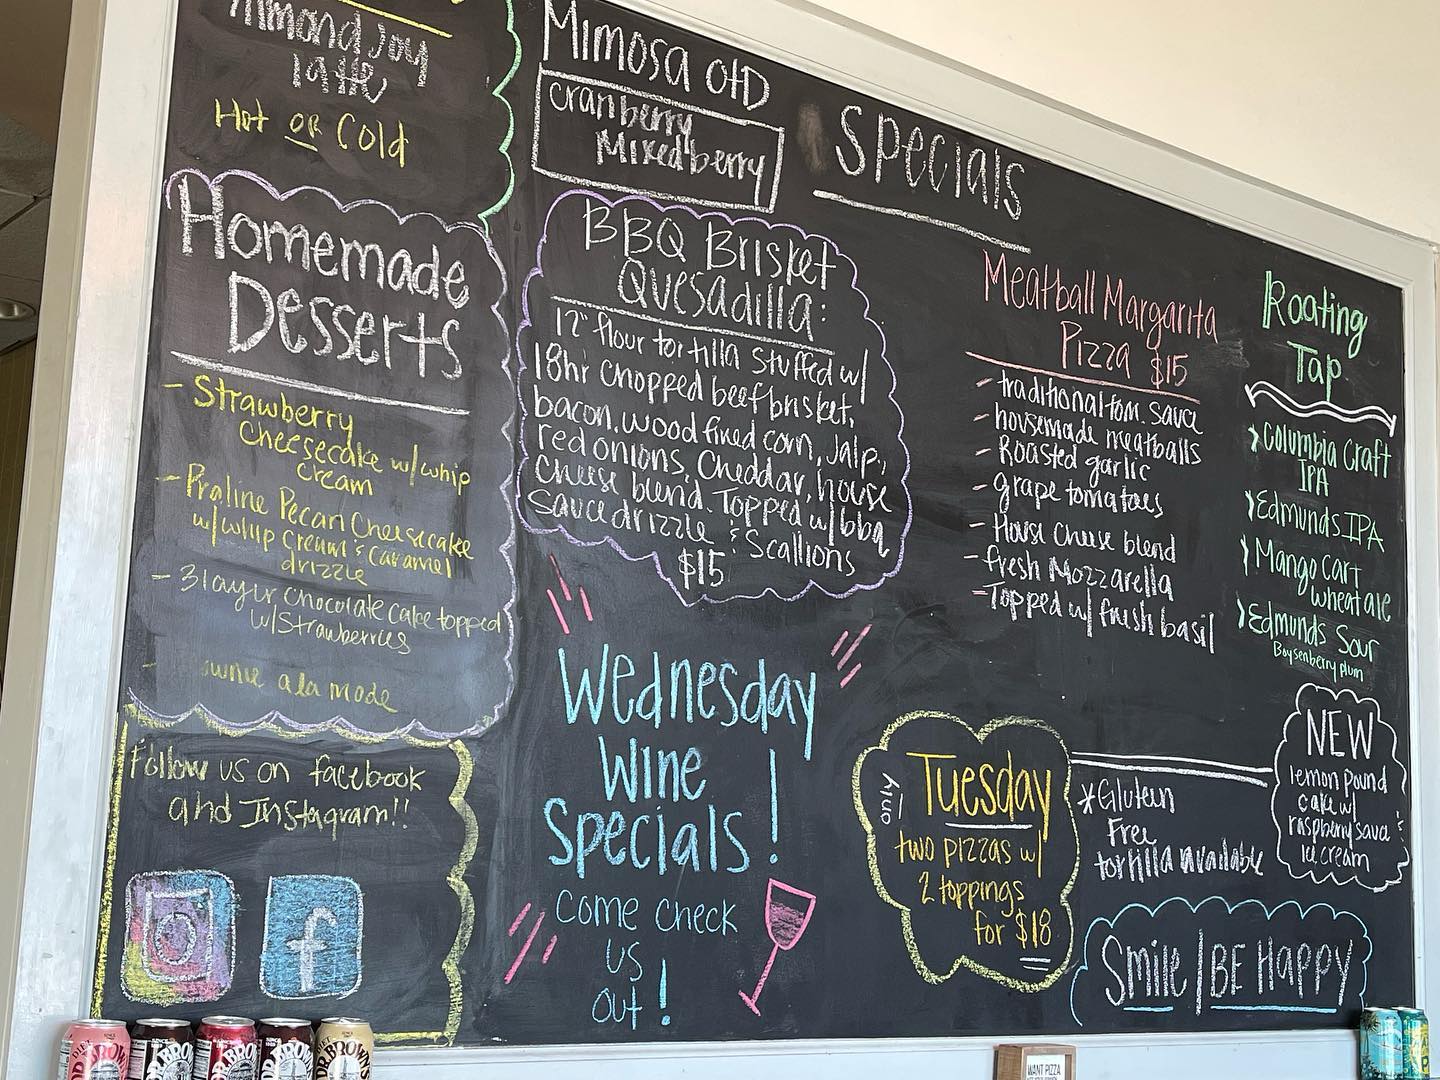 Almond Joy
latte
Hot or Cold
Homemade
Desserts
- Strawberry
Cheesecake w/ whip
cream
- Praline Pecan Cheesecake
w/ whip cream & caramel
drizzle
- 3 layer chocolate cake topped
w/ Strawberries
- ownie a la mode
Follow us on facebook
and Instagram!!
f
Mimosa OTD
cranberry
Mixed berry
Specials
BBQ Brisket
Quesadilla:
12" flour tortilla stuffed w/
18hr chopped beef brisket,
bacon, wood fired corn, Jalp.,
red onions, Cheddar, house
cheese blend. Topped w/ bbq
sauce drizzle & Scallions
$15
Wednesday
Wine
Specials!
come check
us
out!
Meatball Margarita
Pizza $15
- traditional tom. sauce
- housemade meatballs
- Roasted garlic
- grape tomatoes
- House cheese blend
- fresh Mozzarella
- Topped w/ fresh basil
Roating
Tap
> Columbia Craft
IPA
> Edmunds IPA
> Mango cart
wheat ale
> Edmunds Sour
Boysenberry plum
Tuesday
only
two pizzas w/
2 toppings
for $18
*Gluten
Free
tortilla available
NEW
lemon pound
cake w/
raspberry sauce &
ice cream
Smile | BE HAPPY
DIET
DR. BROWN'S
DR. BROWN'S
DR. BROWN'S
DR. BROWN'S
DR. BROWN'S
WANT PIZZA